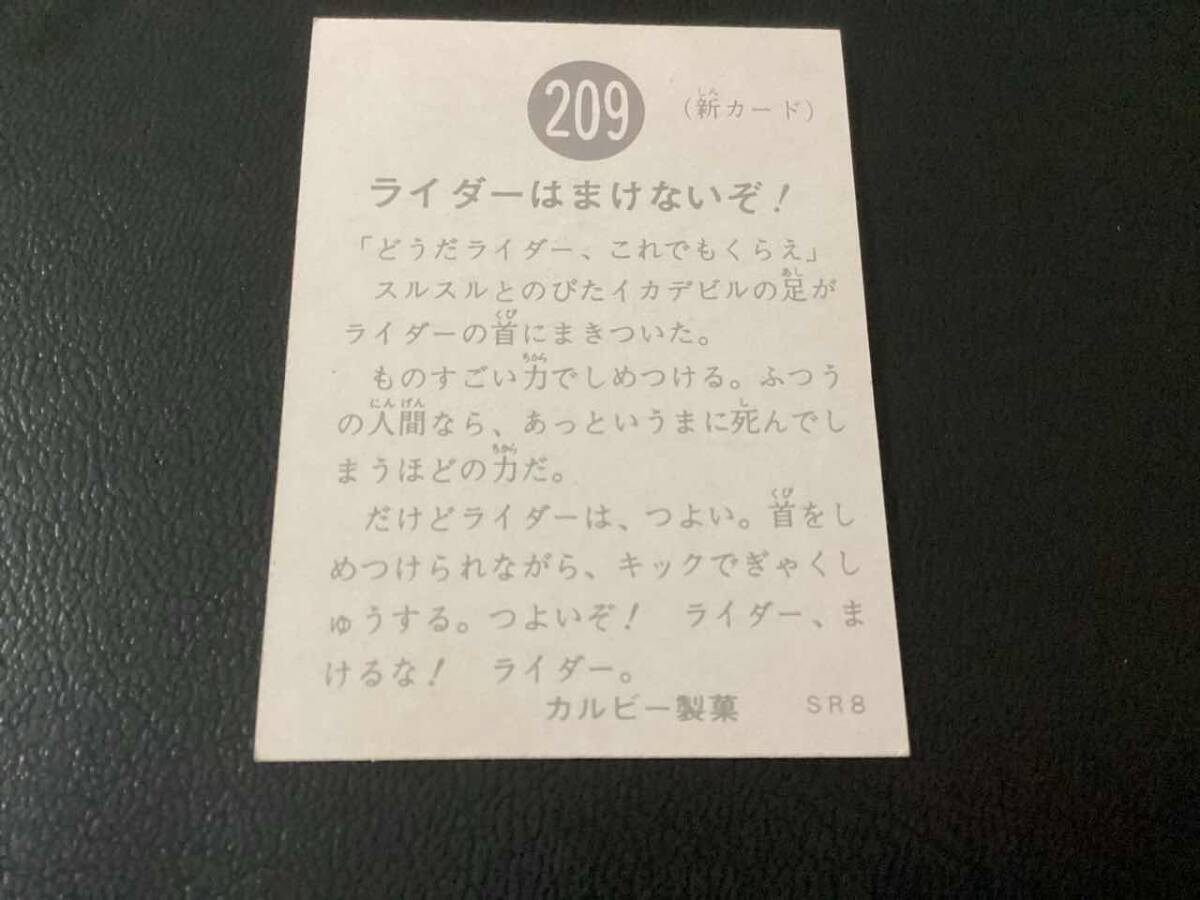 209
(新カード)
ライダーはまけないぞ!
「どうだライダー、これでもくらえ」
スルスルとのびたイカデビルの足が
ライダーの首にまきついた。
ものすごい力でしめつける。ふつう
の人間なら、あっというまに死んでし
まうほどの力だ。
だけどライダーは、つよい。首をし
めつけられながら、キックでぎゃくし
ゅうする。つよいぞ! ライダー、ま
けるな! ライダー。
カルビー製菓 SR8